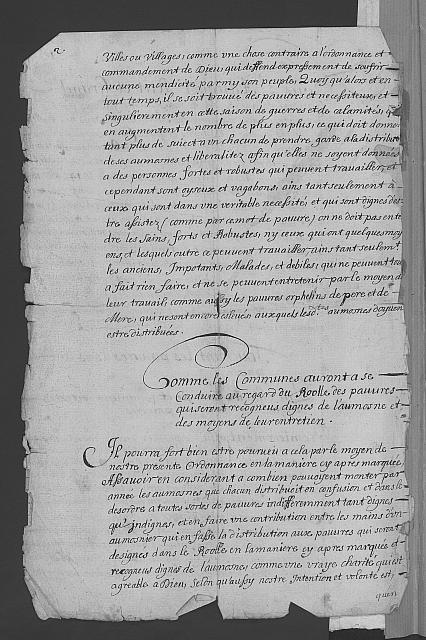 2
Villes ou Villages, comme vne chose contraire a l'ordonnance et
commandement de Dieu, qui deffend expressement de souffrir
aucune mendicité parmy son peuple, Quoy qu'alors et en
tout temps, il se soit trouué des pauures et necessiteux, et
singulierement en cette saison de guerres et de calamités, qui
en augmentent le nombre de plus en plus, ce qui doit donner
tant plus de suiect a vn chacun de prendre garde a la distribu
de ses aumosnes et liberalitez afin qu'elles ne soyent données
a des personnes fortes et robustes qui peuuent trauailler, et
cependant sont oyseux et vagabons, ains tant seulement a
ceux qui sont dans vne veritable necessité, et qui sont dignes des
tre assistez (comme par ce mot de pauure) on ne doit pas ente
dre les Sains, forts et Robustes, ny ceux qui ont quelques moy
ens, et lesquels outre ce peuuent trauailler, ains tant seulemt
les anciens, Impotants, Malades, et debiles, qui ne peuuent tou
a fait rien faire, et ne se peuuent entretenir par le moyen de
leur trauail, comme aussy les pauures orphelins de pere et de
Mere, qui ne sont encor esleués, auxquels lesd. aumosnes doyuent
estre distribuées.
Comme les Communes auront a se
Conduire au regard du Roolle des pauures
qui seront recogneus dignes de l'aumosne et
des moyens de leur entretien.
Il pourra fort bien estre pourueu a cela par le moyen de
nostre presente Ordonnance en la maniere cy apres marquée,
Assauoir en considerant a combien pouuoyent monter par
année les aumosnes que chacun distribuoit en confusion et dans le
desordre a toutes sortes de pauures indifferemment tant dignes
qu'indignes, et en faire vne contribution entre les mains d'vn
aumosnier qui en fasse la distribution aux pauures qui seront
designes dans le Roolle en la maniere cy apres marquée et
recogneus dignes de l'aumosne, comme vne vraye charité qui est
agreable a Dieu, Selon qu'aussy nostre Intention et volonté est,
quen